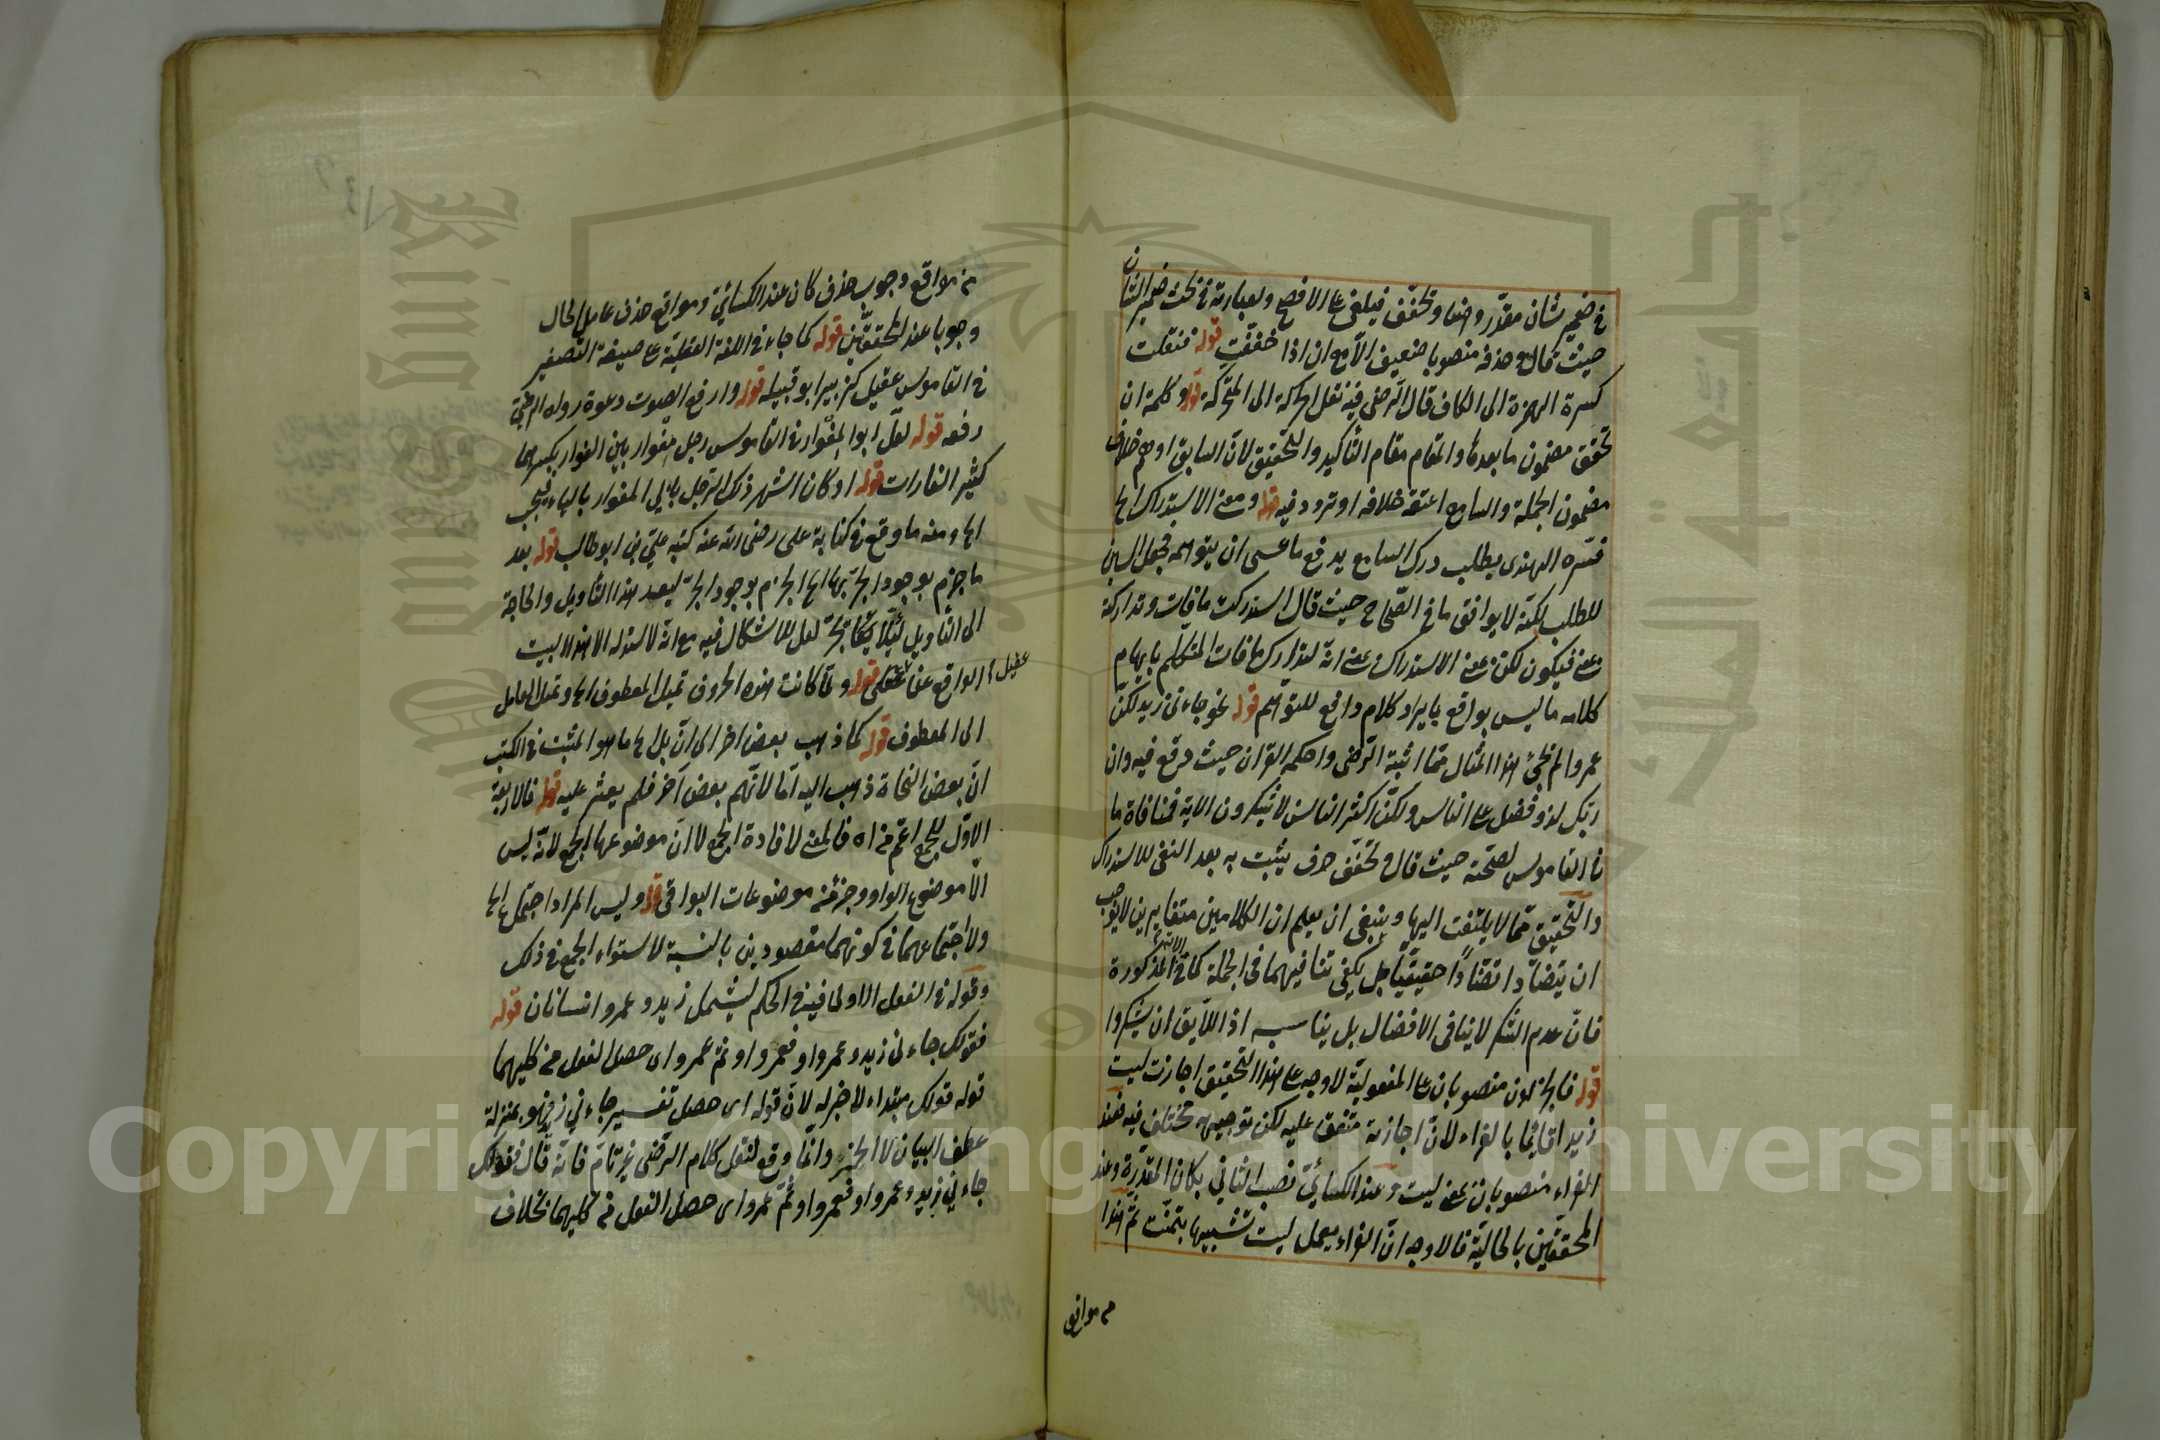 في ضمير شان مقدر واضعا وتخفف فيلغى على الافصح ولعبارته في بحث ضمير الشان
حيث قال وحذفه منصوبا ضعيف الا مع ان اذا خففت قوله فنقلت
كسرة الهمزة الى الكاف قال الرضي فيه نقل الحركة الى المتحركة قوله وكلمة ان
تحقق مضمون ما بعدها والمقام مقام التأكيد والتحقيق لان السابق اوهم خلاف
مضمون الجملة والسامع اعتقد خلافه او تردد فيه قوله ومعنى الاستدراك الخ
فسره الهندي بطلب درك السامع يدفع ما عسى ان يتوهمه فجعل السين
للطلب لكنه لا يوافق ما في الصحاح حيث قال استدركت ما فات وتداركته
بمعنى فيكون لكن بمعنى الاستدراك بمعنى انه لتدارك ما فات المتكلم بايهام
كلامه ما ليس بواقع بايراد كلام دافع للتوهم قوله نحو جاءني زيد لكن
عمروا لم يجئ هذا المثال مما اثبته الرضي واحكمه القران حيث وقع فيه وان
ربك لذو فضل على الناس ولكن اكثر الناس لا يشكرون الاية فمنافاة ما
في القاموس لصحته حيث قال وتخفف حرف يثبت به بعد النفي للاستدراك
والتحقيق مما لا يلتفت اليها وينبغي ان يعلم ان الكلامين متغايرين لا يوجب
ان يتضادا تضادا حقيقيا بل يكفي تنافيهما في الجملة كما في الاية المذكورة
فان عدم الشكر لا ينافي الافضال بل يناسبه اذ اللايق ان يشكروا
قوله فالجزءان منصوبان على المفعولية لا وجه على هذا التحقيق اجازت ليت
زيدا قائما بالفراء لان اجازته متفق عليه لكن توجيهه مختلف فيه فعند
الفراء منصوبان بمعنى ليت وعند الكسائي نصب الثاني بكان المقدرة وعند
المحققين بالحالية فالاوجه ان الفراء يعمل ليت تشبيها بتمنت ثم هذا
من مواقع
من مواقع وجوب حذف كان عند الكسائي ومواقع حذف عامل الحال
وجوبا عند المحققين قوله كما جاء في اللغة العقلية على صيغة التصغير
في القاموس عقيل كزبير ابو قبيلة قوله وارفع الصوت دعوة رواه الرضي
رفعه قوله لعل ابوا المغوار في القاموس رجل مغوار بين الغوار بكسرهما
كثير الغارات قوله او كان اشتهر ذلك الرجل بابي المغوار بالياء فيجب
الخ ومنه ما وقع في كتابة علي رضي الله عنه كتبه علي بن ابو طالب قوله بعد
ما جزم بوجود الجر بها الخ الجزم بوجود الجر يبعد هذا التأويل والحاجة
الى التأويل لعل للاشكال فيه مع انه لا سند له الا هذا البيت
الواقع عن عقيل قوله ولما كانت هذه الحروف تميل المعطوف الخ وتميل العامل
الى المعطوف قوله كما ذهب بعض اخر الى ان بل الخ ما هو المثبت في الكتب
ان بعض النحاة ذهب اليه اما لانهم بعض آخر فلم يعثر عليه قوله فالاربعة
الاول للجمع اعم من اه فالمعنى لافادة الجمع لا ان موضوعها الجمع لانه ليس
الا موضوع الواو وجزء من موضوعات البواقي قوله وليس المراد اجتماع الخ
ولا اجتماعهما في كونهما مقصودين بالنسبة لاستواء الجمع في ذلك
وقوله في الفعل الاولى فيه في الحكم ليشمل زيد وعمرو انسانان قوله
فقولك جاءني زيد وعمرو او فعمرو او ثم عمرو اى حصل الفعل من كليهما
قوله قولك مبتداء لا خبر له لان قوله اى حصل تفسير جاءني زيد فهو بمنزلة
عطف البيان لا الخبر وانما وقع لنقل كلام الرضي غير تام فانه قال فقولك
جاءني زيد وعمرو او فعمرو او ثم عمرو اى حصل الفعل من كليهما بخلاف
Copyright © King Saud University